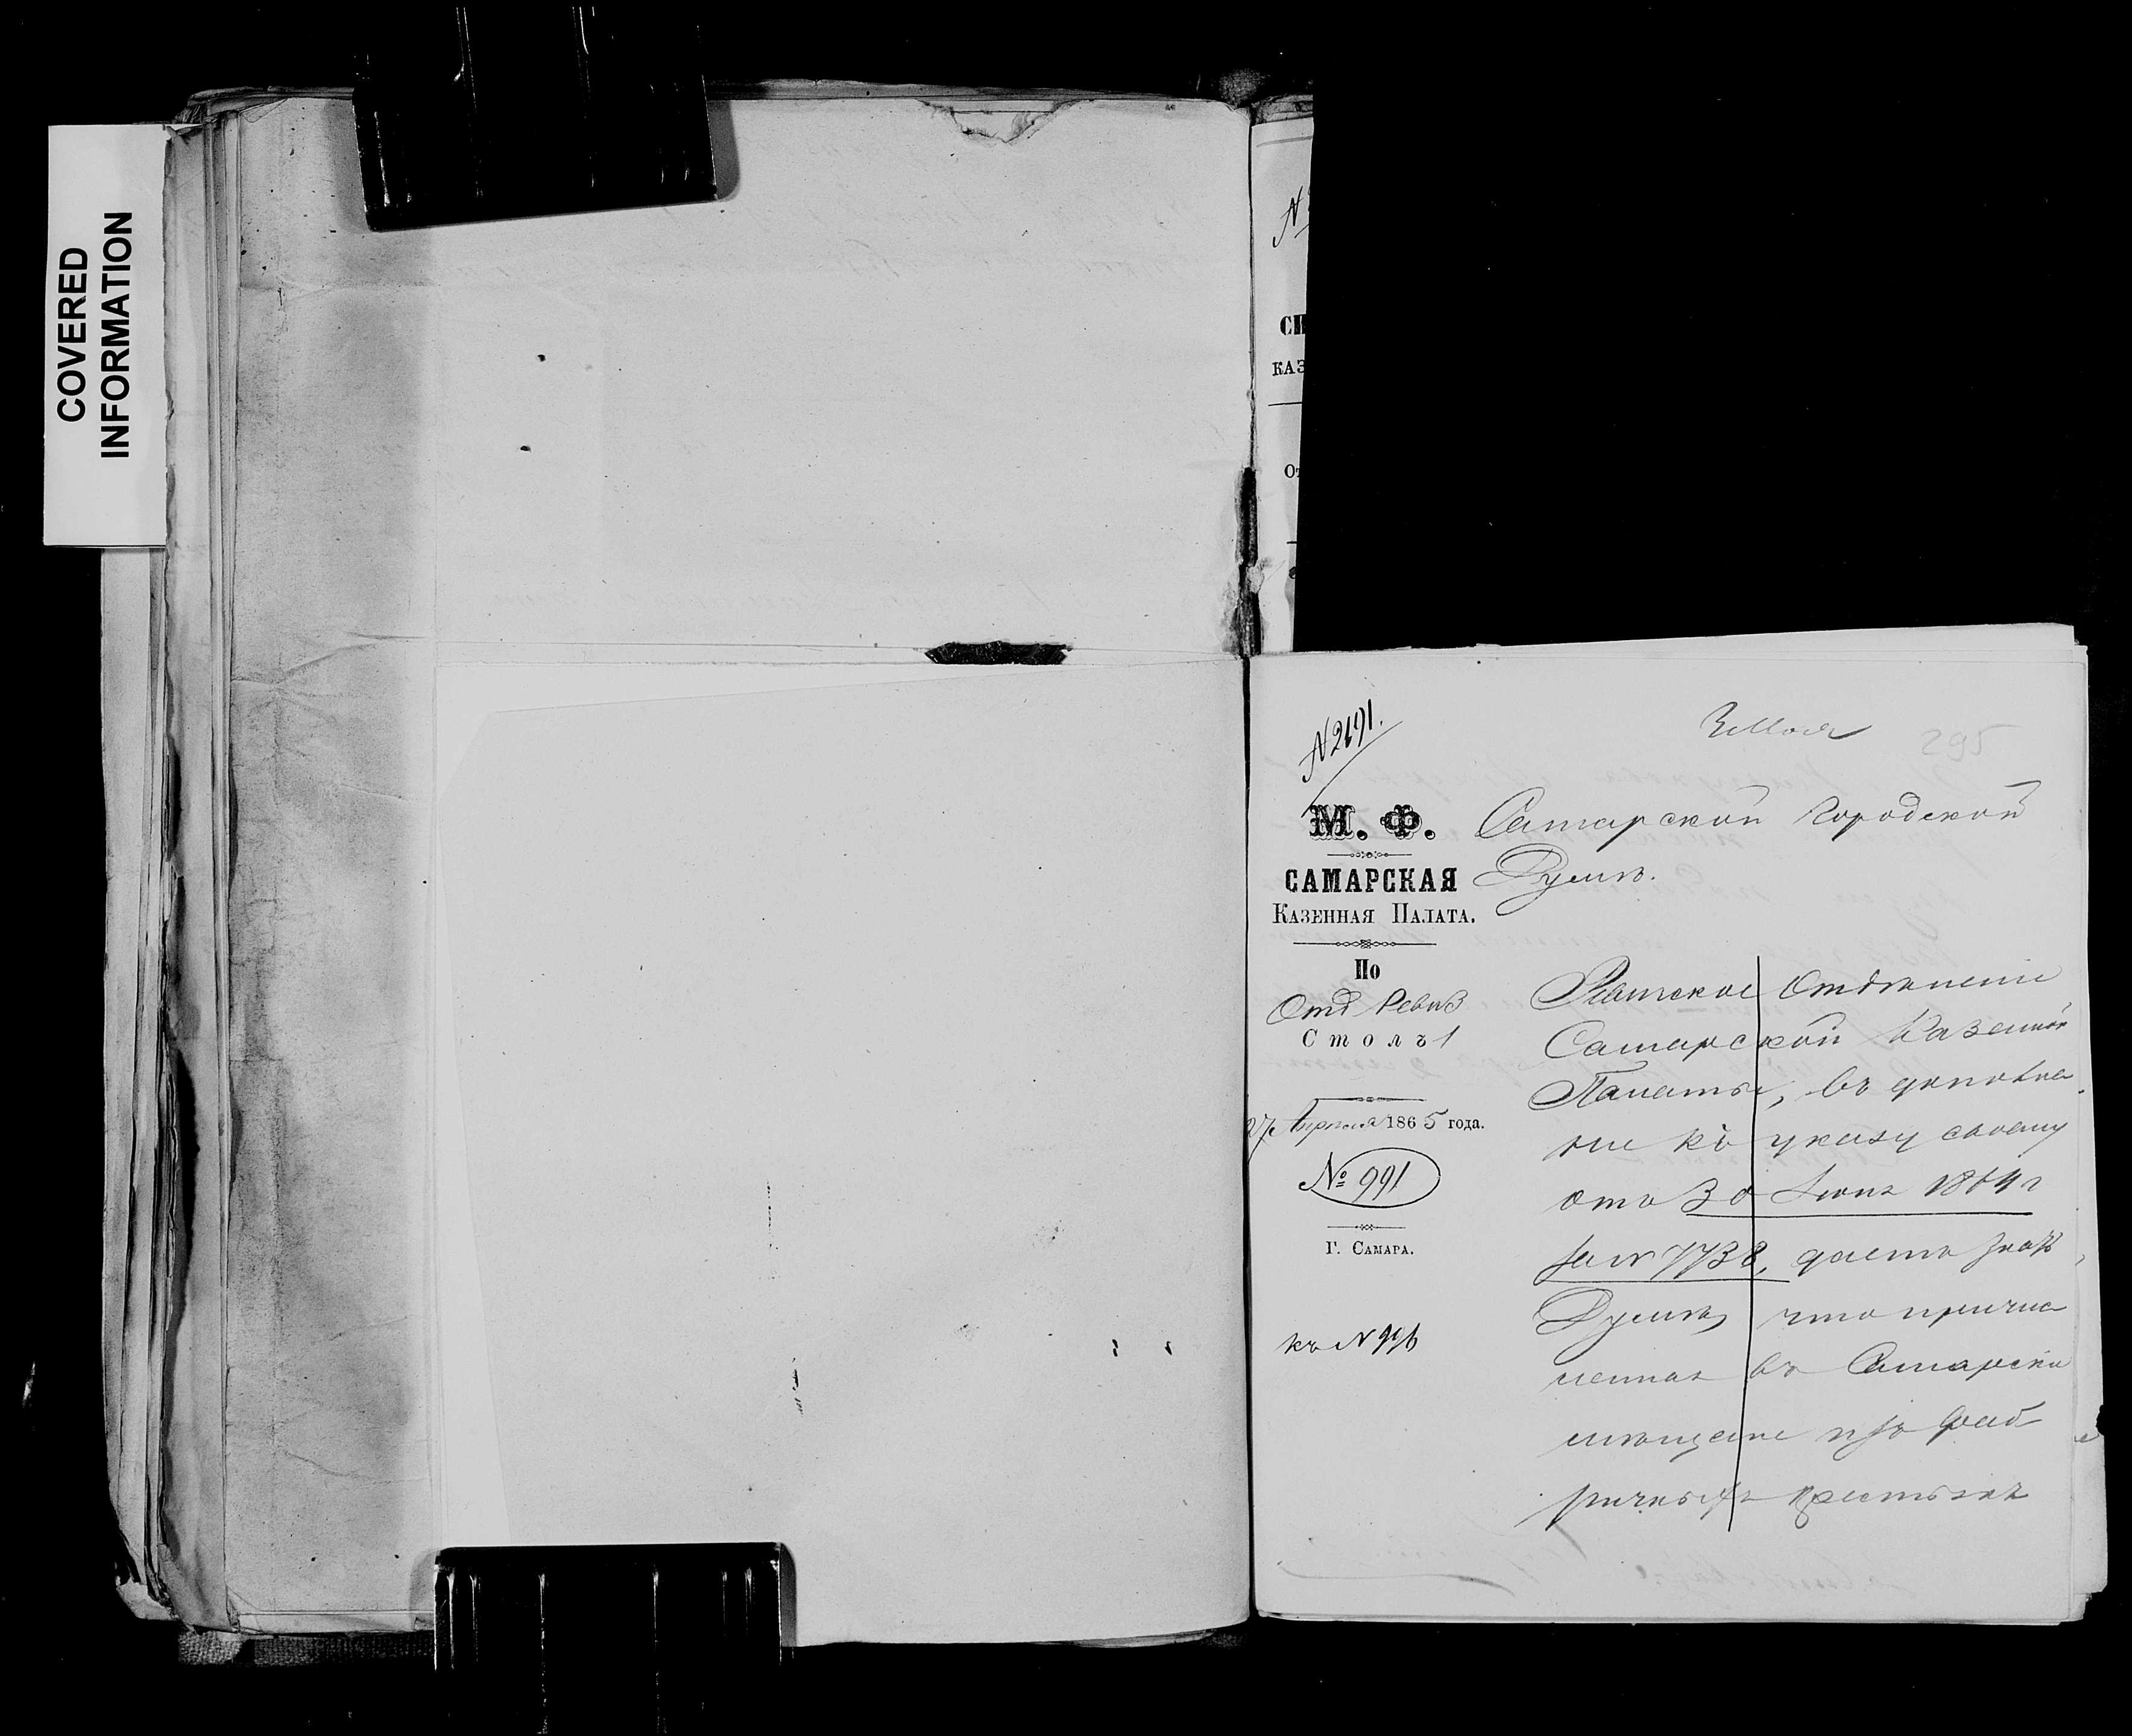 COVERED
INFORMATION
N
СИ
КАЗ
От
N 2191.
3 Мая
295
М. Ф.
САМАРСКАЯ
КАЗЕННАЯ ПАЛАТА.
По
Отд Ревиз
Столъ 1
27 Апреля 1865 года.
№ 991
Г. САМАРА.
къ N 996
Самарской Городской
Думѣ.
Ревизское Отдѣленіе
Самарской Казенной
Палаты, въ дополне
ніе къ указу своему
отъ 30 Іюня 1864 г
за N 7738, даетъ знать
Думѣ, что причис
ленная въ Самарскіе
мѣщане изъ фаб
ричныхъ крестьянъ